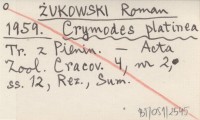 ŻUKOWSKI Roman
1959. Crymodes platinea
Tr. z Pienin. — Acta
Zool. Cracov. 4, nr 2,
ss. 12, Rez., Sum.